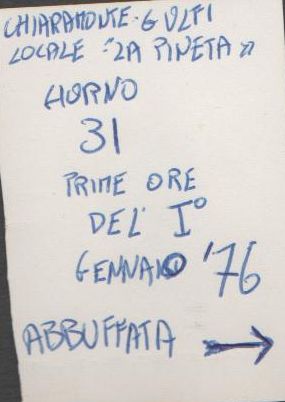 CHIARAMONTE - GULFI
LOCALE "LA PINETA"
GIORNO
31
PRIME ORE
DEL' I°
GENNAIO '76
ABBUFFATA →